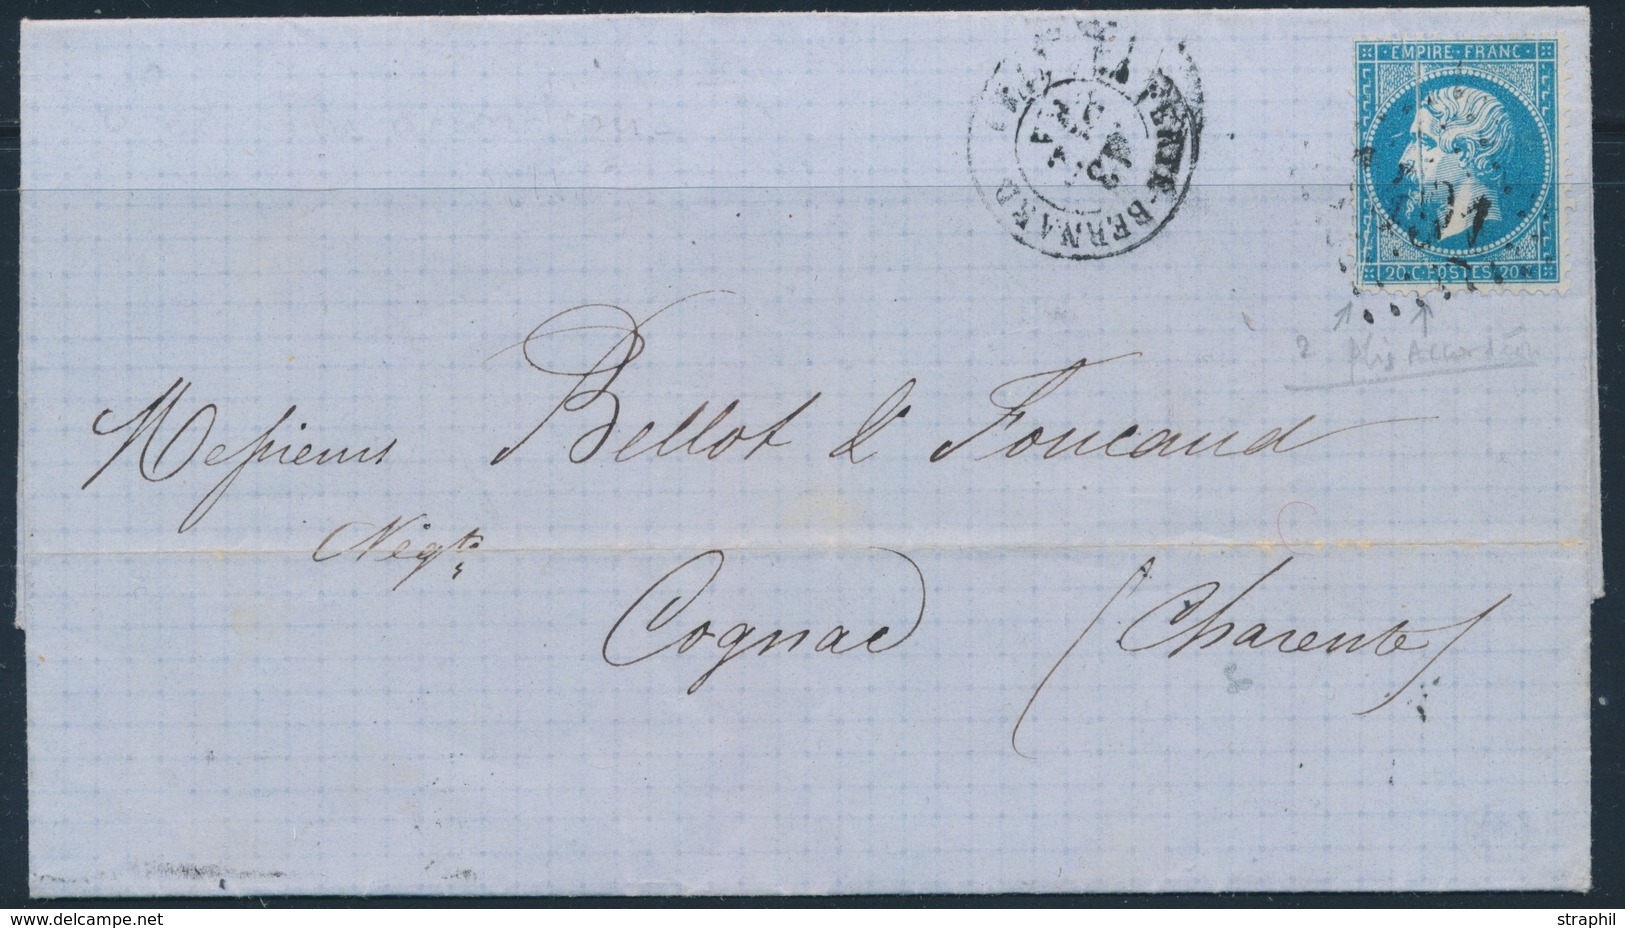 EMPIRE FRANC
LA FERTÉ-BERNARD
20 C POSTES 20
2 plis Accordéon
Messieurs Bellot & Foucaud
Négts
Cognac (Charente)
www.delcampe.net
straphil